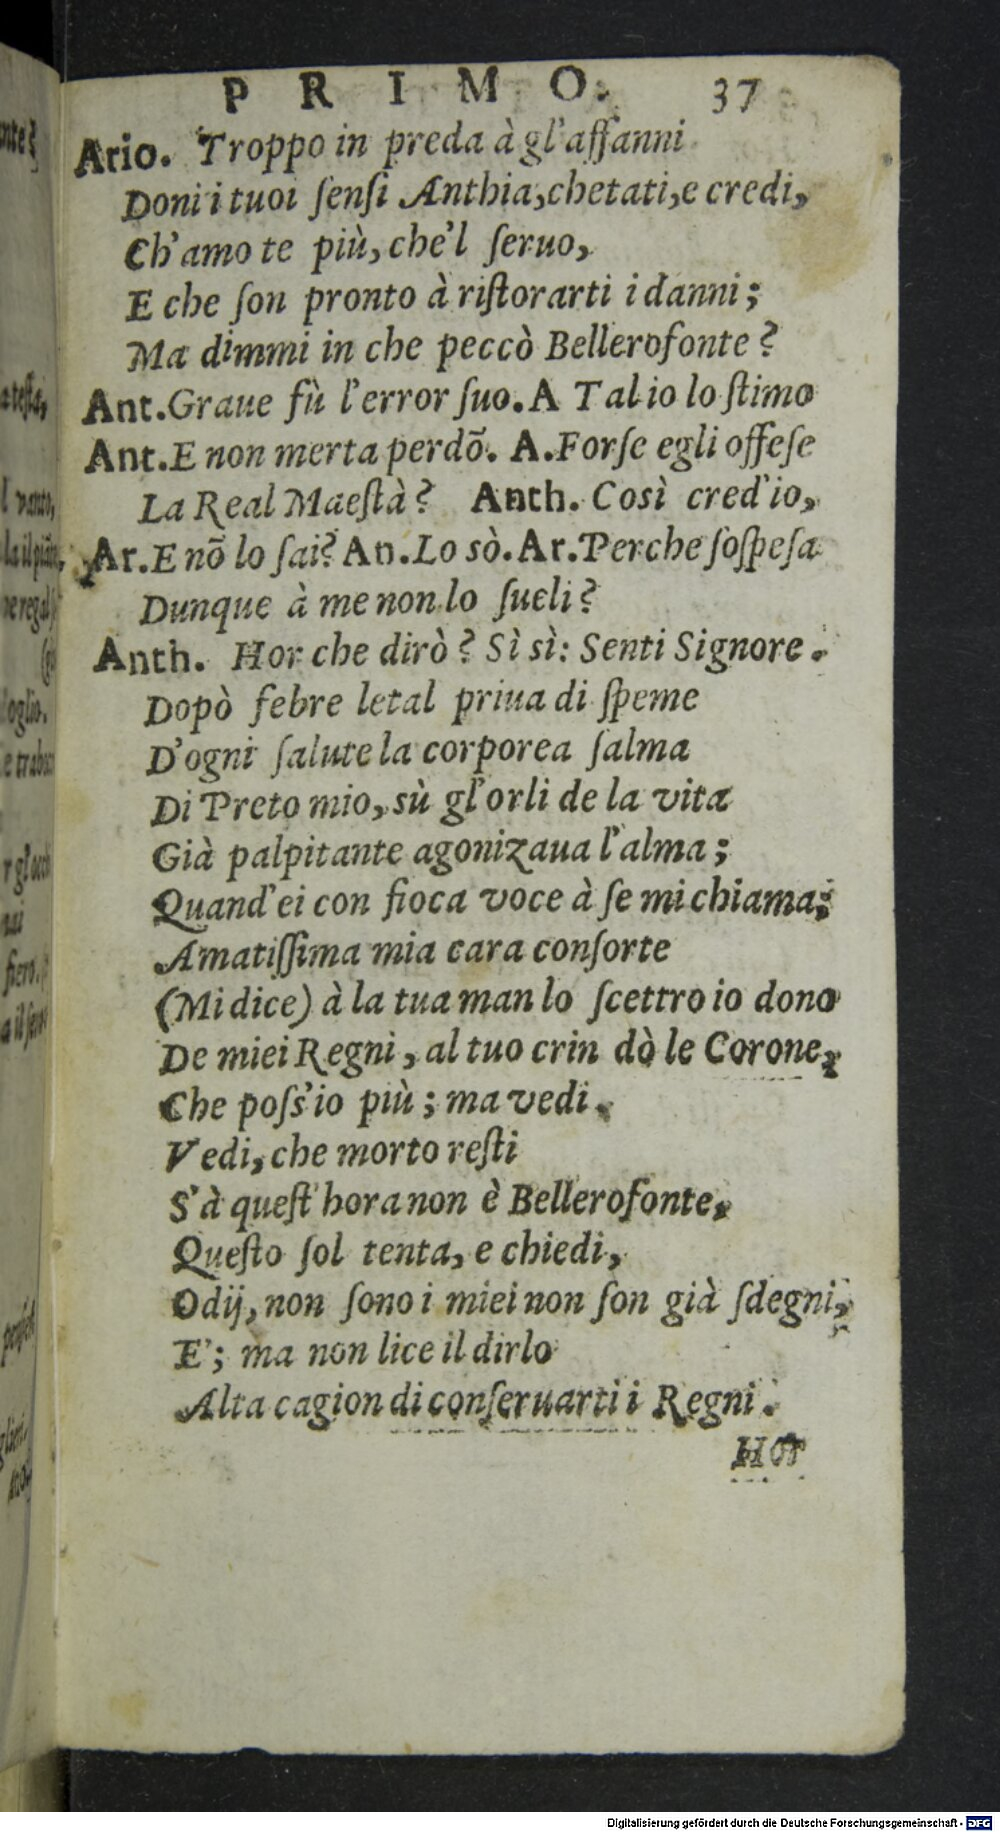 PRIMO. 37
Ario. Troppo in preda à gl'affanni
Doni i tuoi ſenſi Anthia, chetati, e credi,
Ch'amo te più, che'l ſeruo,
E che ſon pronto à riſtorarti i danni;
Ma dimmi in che peccò Bellerofonte?
Ant. Graue fù l'error ſuo. A Tal io lo ſtimo
Ant. E non merta perdõ. A. Forſe egli offeſe
La Real Maeſtà? Anth. Così cred'io,
Ar. E nõ lo ſai? An. Lo sò. Ar. Perche ſoſpeſa
Dunque à me non lo ſueli?
Anth. Hor che dirò? Sì sì: Senti Signore.
Dopò febre letal priua di ſpeme
D'ogni ſalute la corporea ſalma
Di Preto mio, sù gl'orli de la vita
Già palpitante agonizaua l'alma;
Quand'ei con fioca voce à ſe mi chiama;
Amatiſſima mia cara conſorte
(Mi dice) à la tua man lo ſcettro io dono
De miei Regni, al tuo crin dò le Corone,
Che poſs'io più; ma vedi.
Vedi, che morto reſti
S'à queſt'hora non è Bellerofonte,
Queſto ſol tenta, e chiedi,
Odij, non ſono i miei non ſon già ſdegni,
E'; ma non lice il dirlo
Alta cagion di conſeruarti i Regni.
Hor
Digitalisierung gefördert durch die Deutsche Forschungsgemeinschaft - DFG